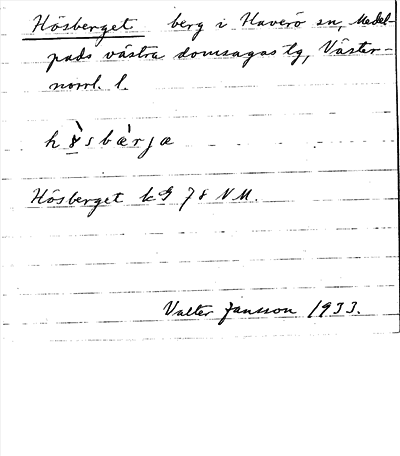 Hösberget berg i Haverö sn, Medel-
pads västra domsagas tg, Väster-
norrl. l.
Hösberget k 78 NM.
Valter Jansson 1933.